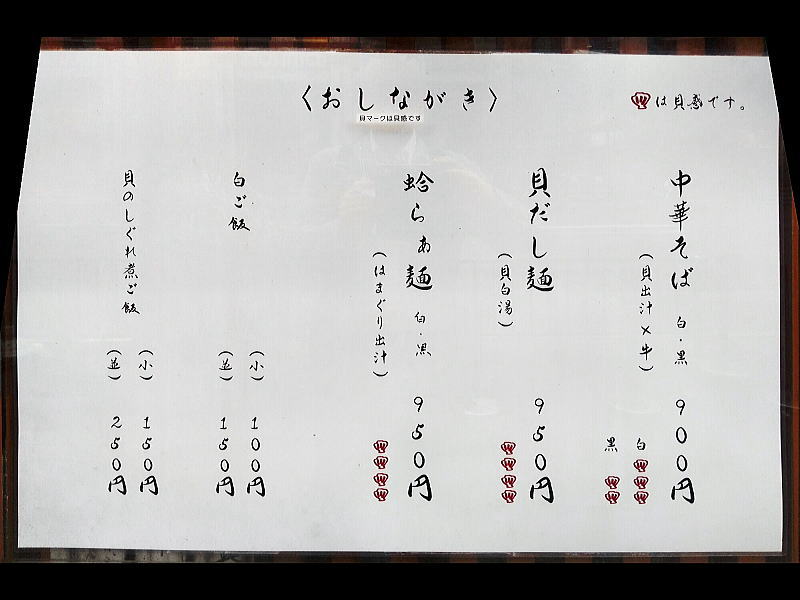 〈おしながき〉
貝マークは貝感です
は貝感です。
中華そば 白・黒 900円
(貝出汁×牛)
白
黒
貝だし麺 950円
(貝白湯)
蛤らぁ麺 白・黒 950円
(はまぐり出汁)
白ご飯
(小) 100円
(並) 150円
貝のしぐれ煮ご飯
(小) 150円
(並) 250円